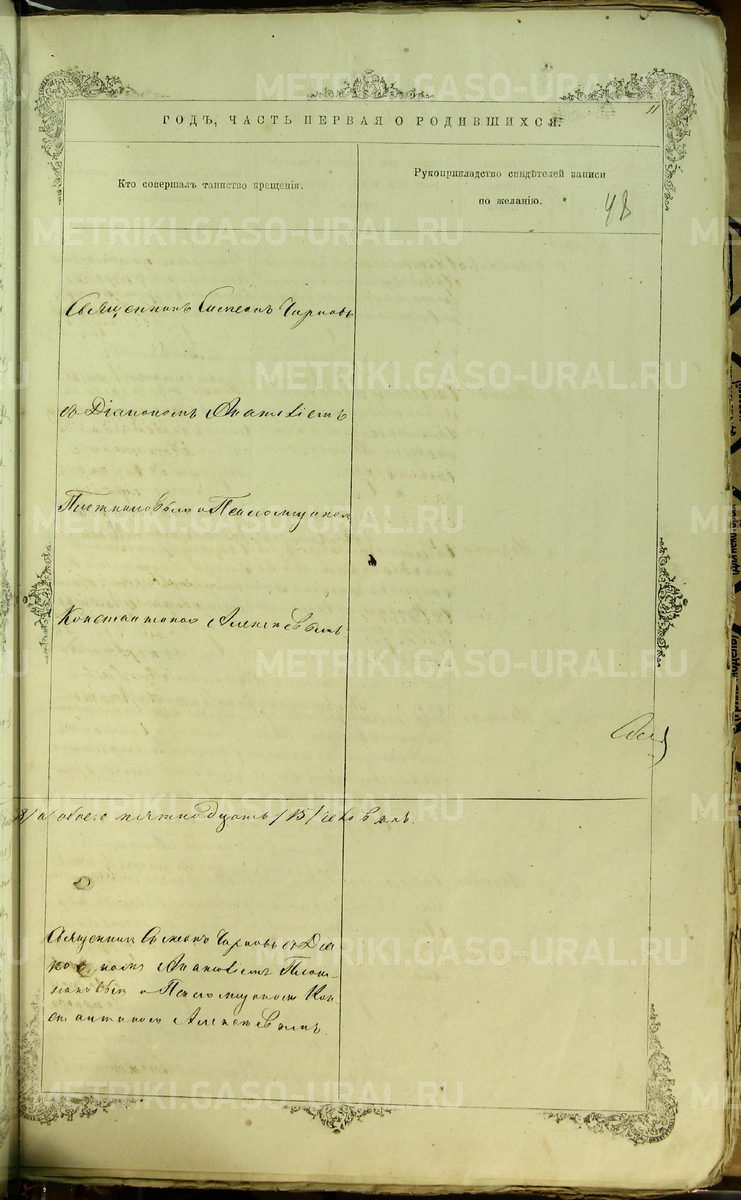 11
ГОДЪ, ЧАСТЬ ПЕРВАЯ О РОДИВШИХСЯ.
Кто совершалъ таинство крещенія.
Рукоприкладство свидѣтелей записи
по желанію.
48
Священникъ Симеонъ Чирковъ
съ Діакономъ
и Псаломщикомъ
Константиномъ Алексѣевымъ
а обоего пятнадцать /15/ человѣкъ.
Священникъ Симеонъ Чирковъ съ Діа
кономъ
и Псаломщикомъ Кон
стантиномъ Алексѣевымъ
METRIKI.GASO-URAL.RU